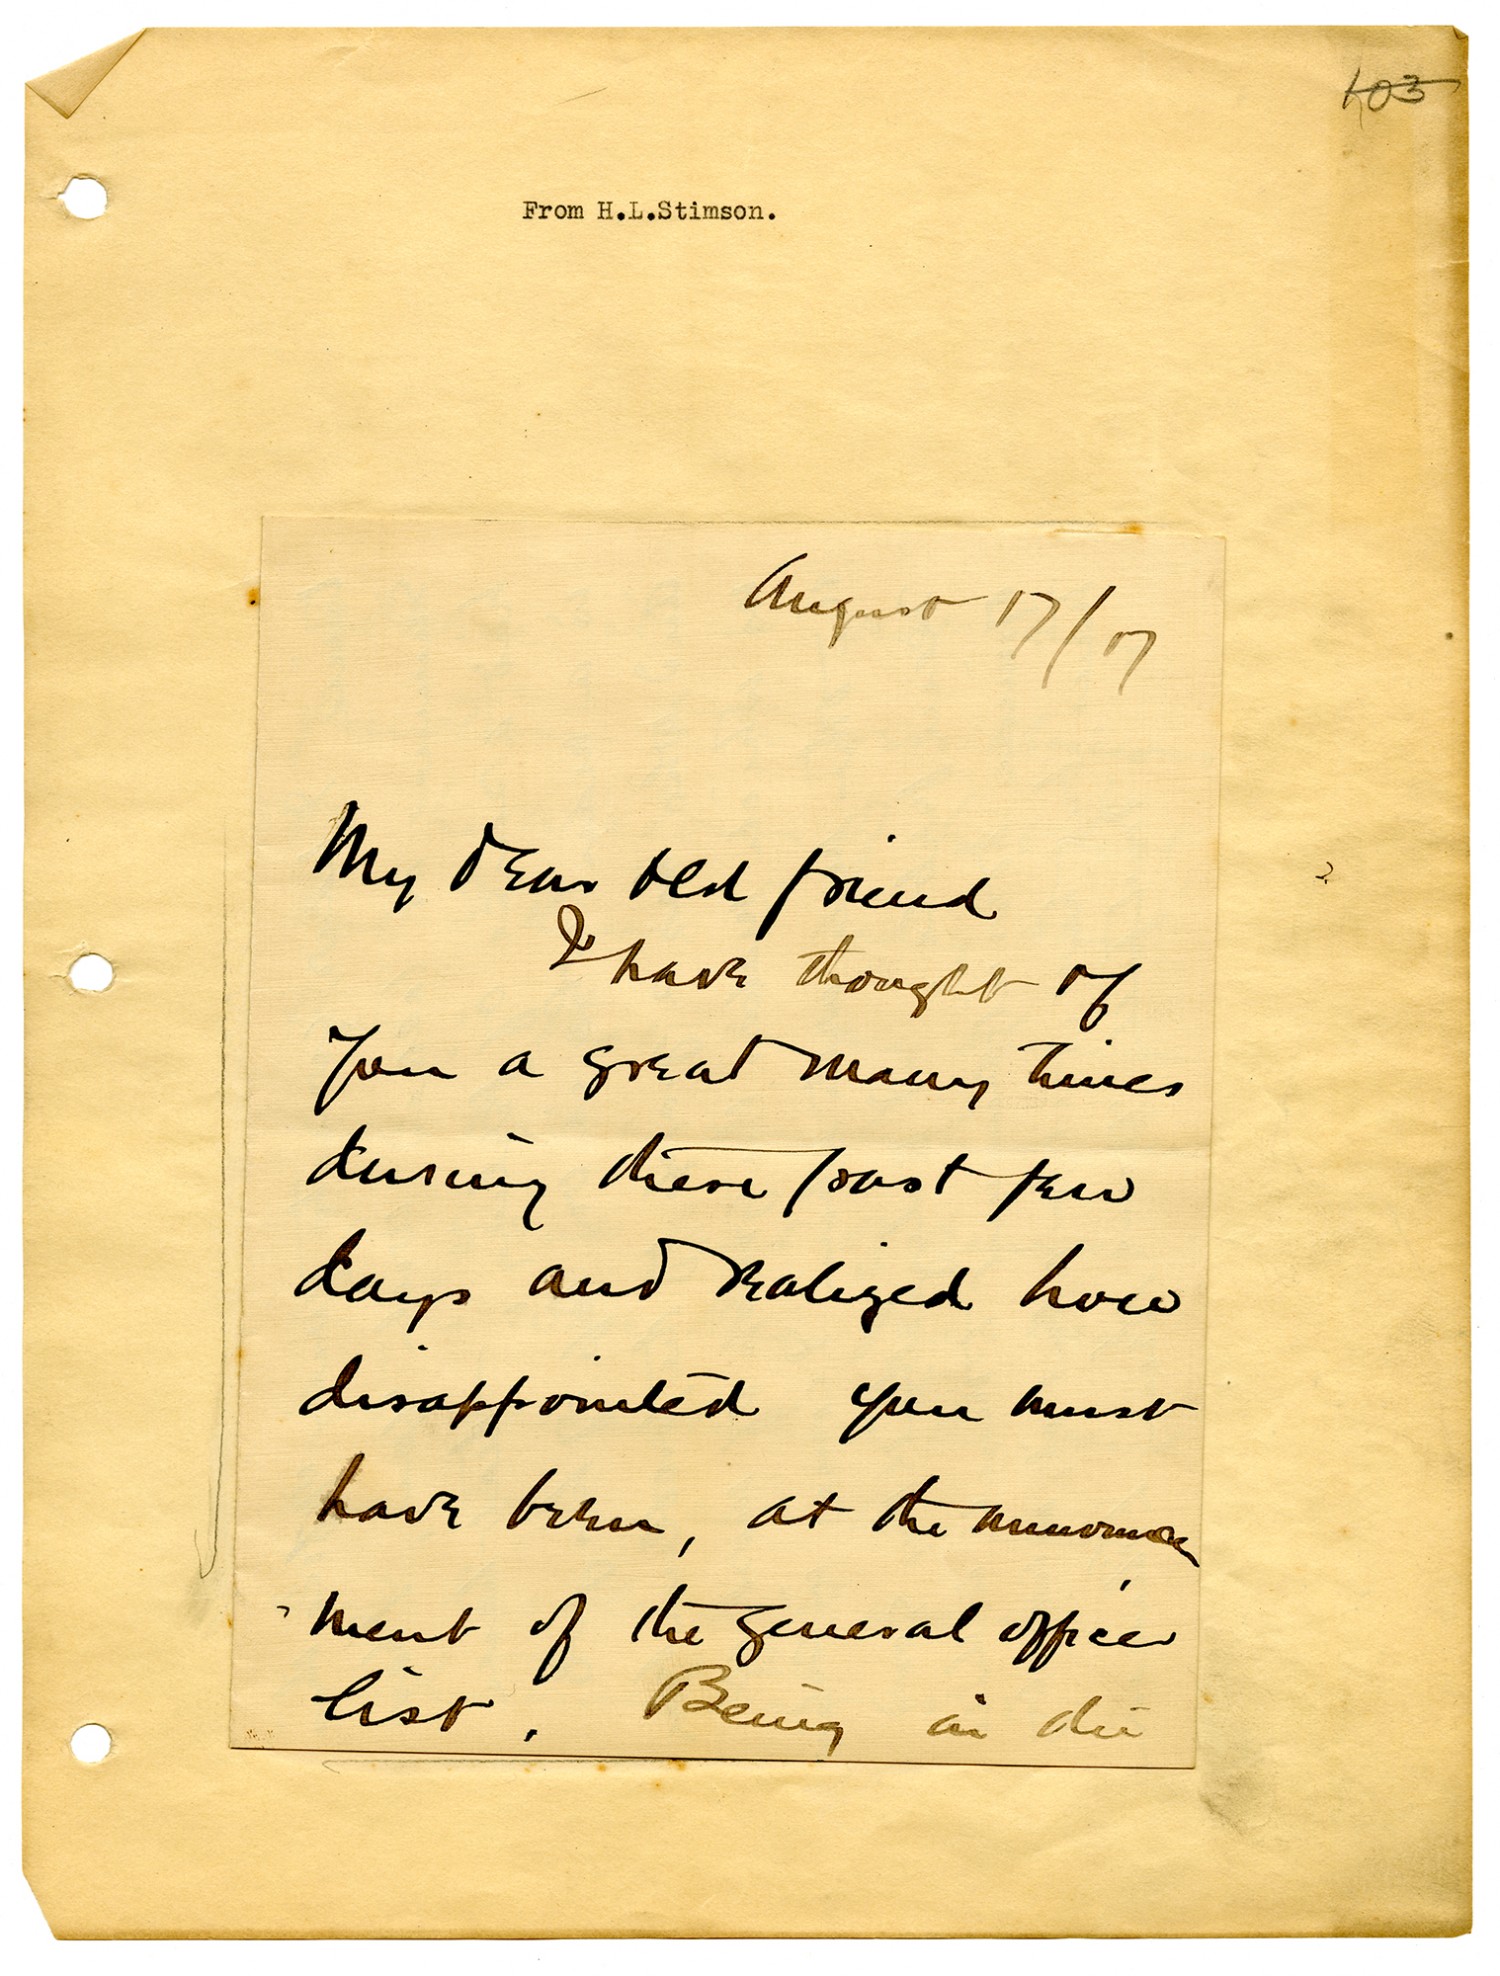 103
From H.L.Stimson.
August 17/17
My dear old friend
I have thought of
you a great many times
during these past few
days and realized how
disappointed you must
have been, at the announce
ment of the general officer
list. Being in the